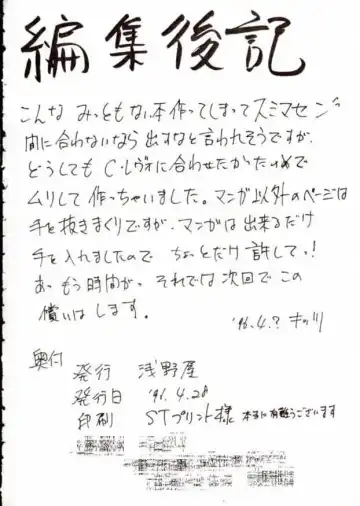 編集後記
こんな みっともない本作ってしまってスミマセン
間に合わないなら出すなと言われそうですが、
どうしても C・レヴォに合わせたかったので
ムリして 作っちゃいました。マンガ以外のページは
手を抜きまくりですが、マンガは出来るだけ
手を入れましたので ちょっとだけ 許してっ!
あっ もう時間が、それでは次回で この
償いは します。
'96.4.?
奥付
発行 浅野屋
発行日 '96.4.28
印刷 STプリント様 本当に有難うございます